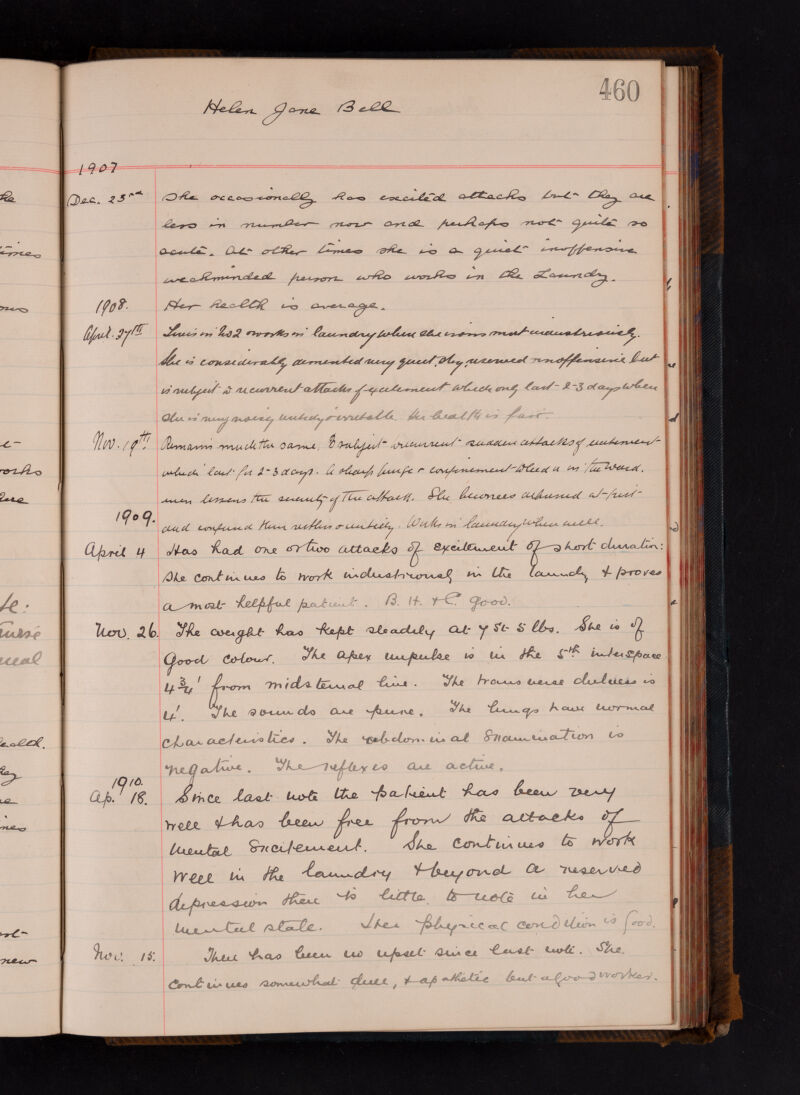 460
Helen Jane Bell
1907
Dec. 23rd She occasionally has excited attacks but they are
less in number now and perhaps not quite so
acute. At other times she is a quiet inoffensive
weakminded person who works in the Laundry.
1908. Her health is average.
April. 27th Lives in No 2 & works in laundry where she irons most industriously.
She is considerably demented very quiet, shy, reserved & inoffensive but
is subject to recurrent attacks of excitement which only last 2-3 days when
she is very noisy untidy & irritable. Her health is fair.
Nov. 19th Remains much the same, & subject recurrent sudden attacks of excitement
which last for 2-3 days. A sharp purge & confinement to bed in the ward.
lessens the severity of the attack. She becomes at first
and confused then restless & untidy. Works in laundry when well.
1909.
April 4 Has had one or two attacks of excitement of short duration:
she continues to work industriously in the laundry & proves
a most helpful patient. B. H. & C. good.
Nov. 26. The weight has kept steadily at 7 St 5 lbs. She is of
good colour. The apex impulse is in the 5th interspace
4 3/4' from midsternal line. The transverse dulness is
4'. The sounds are pure. The lungs have normal
characteristics. The abdominal examination is
negative. The reflexes are active.
1910.
Ap. 18. Since last note the patient has been very
well & has been free from the attacks of
mental excitement. She continues to work
well in the laundry & beyond a reserved
depression there is little to note in her
mental state. Her physical condition is good.
Nov. 15. There has been no upset since last note. She
continues somewhat dull, & apathetic but a good worker.